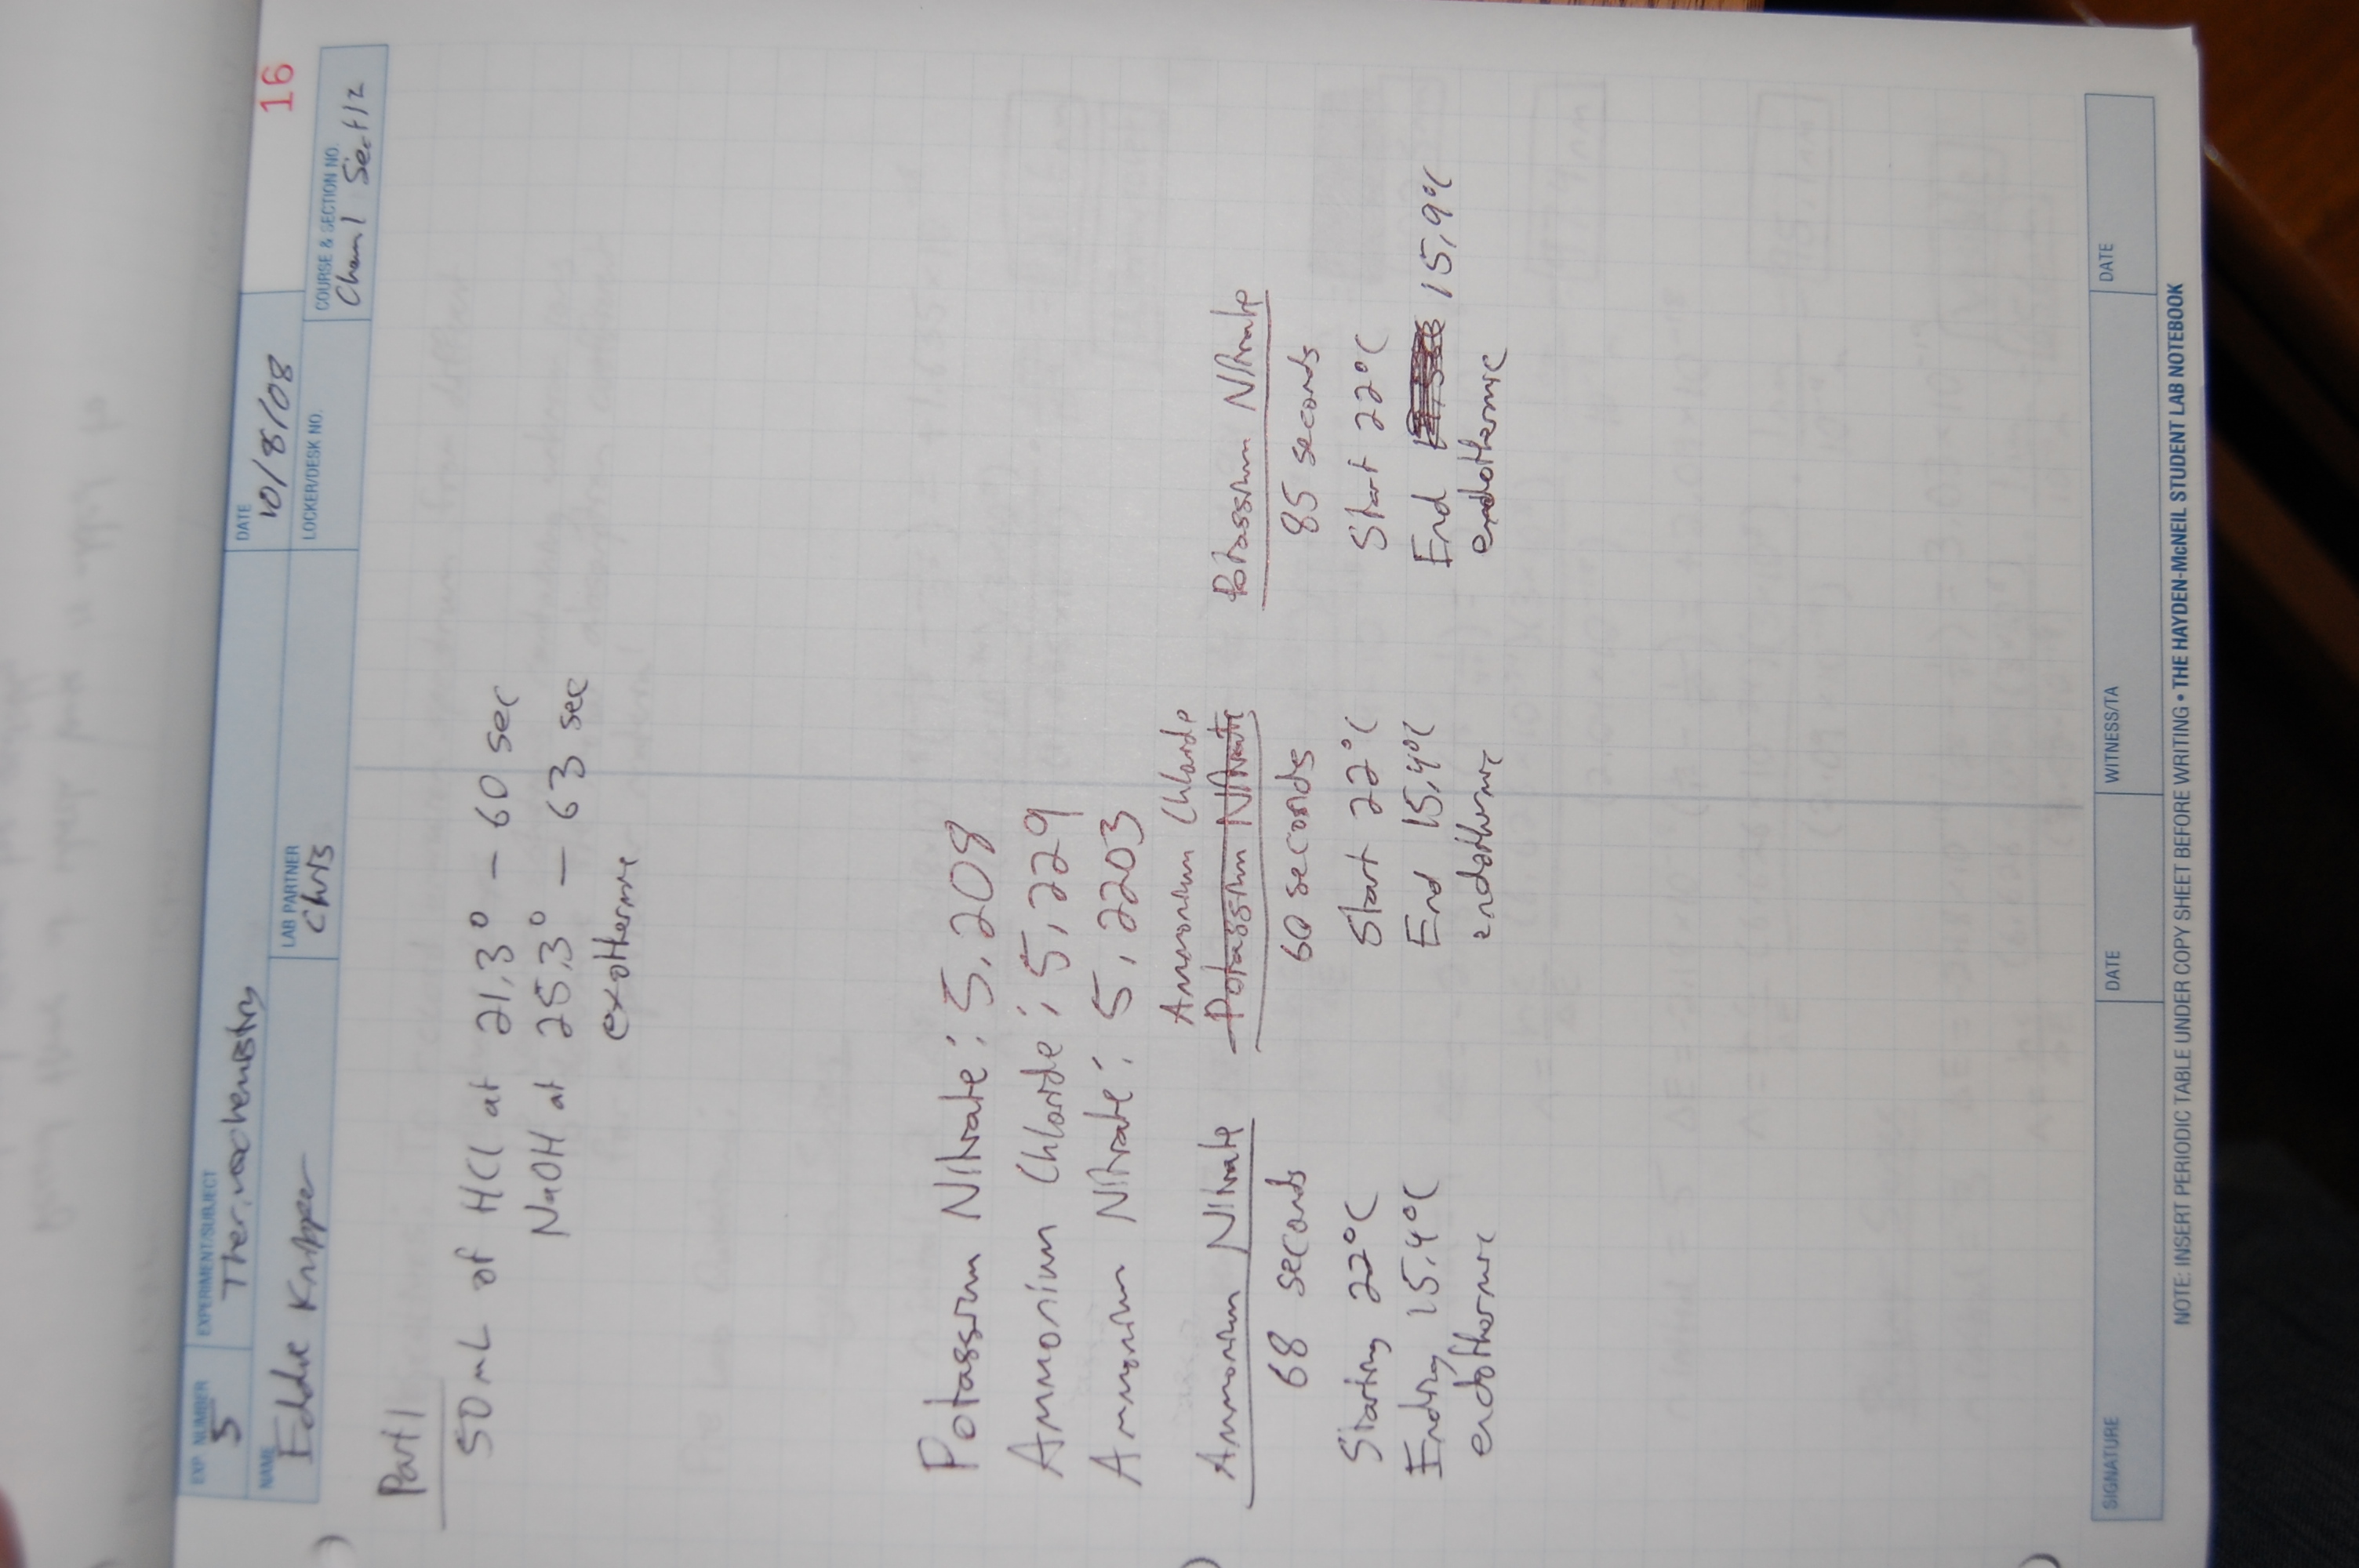 16
EXP. NUMBER
5
EXPERIMENT/SUBJECT
Thermochemistry
DATE
10/8/08
NAME
Eddie Knapper
LAB PARTNER
Chris
LOCKER/DESK NO.
COURSE & SECTION NO.
Chem1 Sect12
Part 1
50 mL of HCl at 21.3° — 60 sec
NaOH at 25.3° — 63 sec
exothermic
Potassium Nitrate: 5.208
Ammonium Chloride: 5.229
Ammonium Nitrate: 5.2203
Ammonium Nitrate
68 seconds
Starting 22°C
Ending 15.4°C
endothermic
Ammonium Chloride
Potassium Nitrate
60 seconds
Start 22°C
End 15.4°C
endothermic
Potassium Nitrate
85 seconds
Start 22°C
End 15.9°C
endothermic
SIGNATURE
DATE
WITNESS/TA
DATE
NOTE: INSERT PERIODIC TABLE UNDER COPY SHEET BEFORE WRITING • THE HAYDEN-McNEIL STUDENT LAB NOTEBOOK